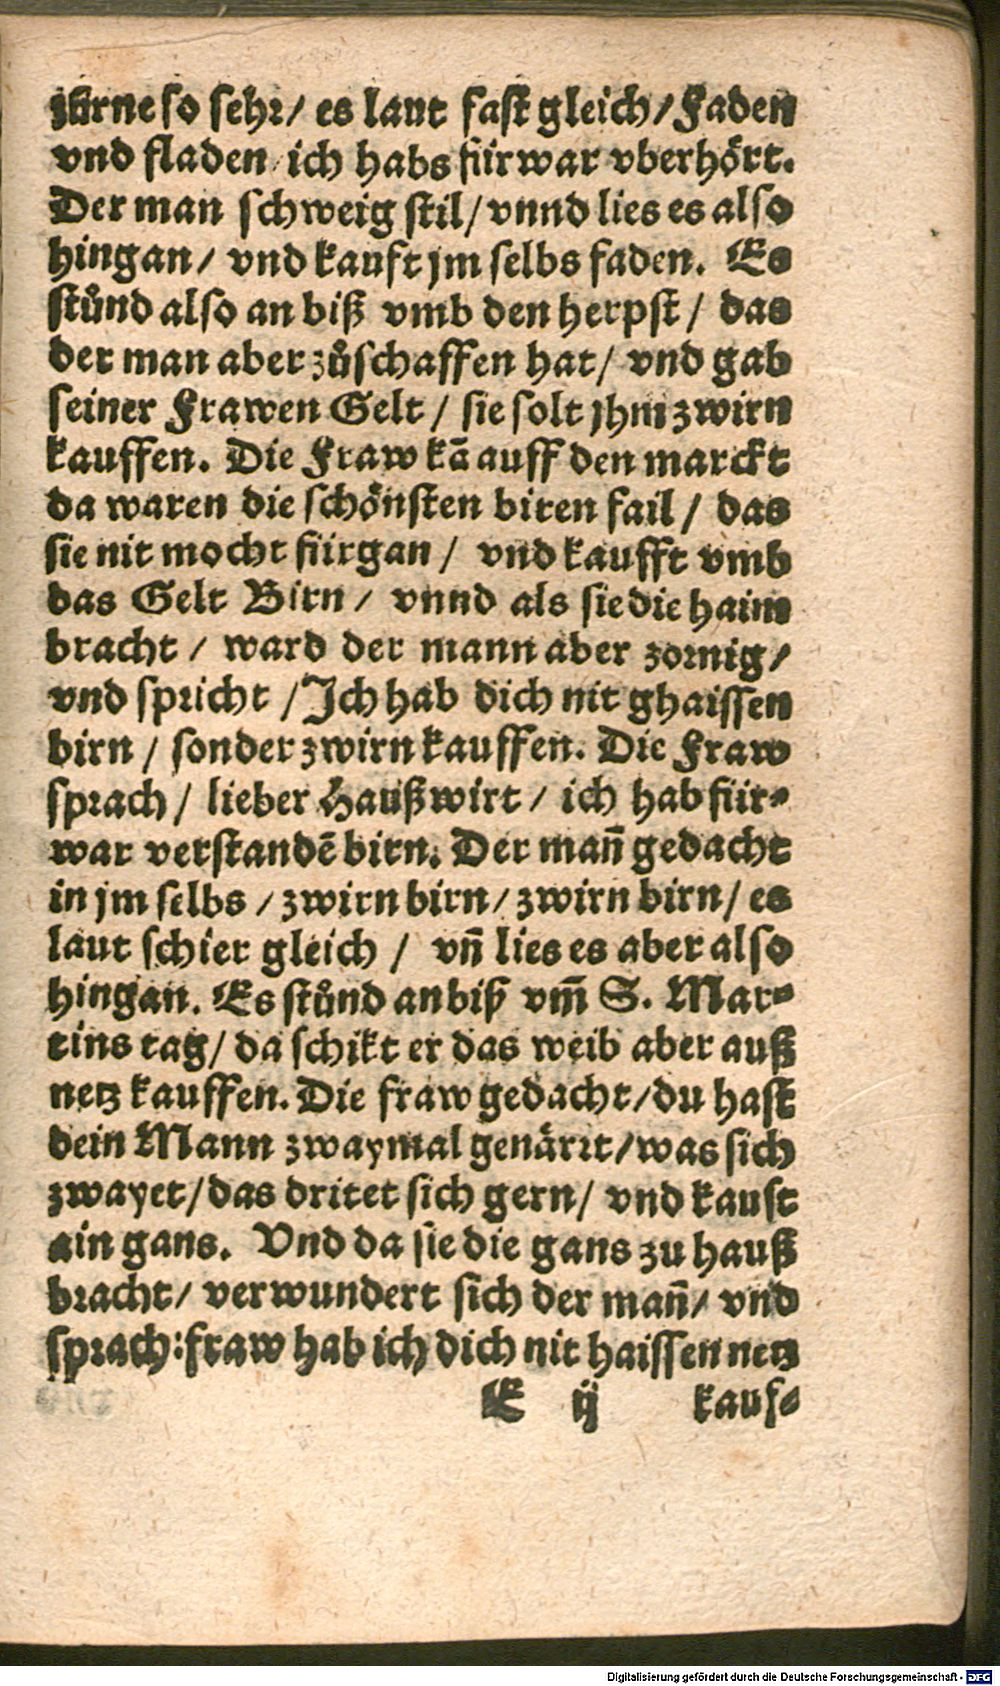 zürne so sehr/ es laut fast gleich/ Faden
vnd fladen/ ich habs fürwar vberhört.
Der man schweig stil/ vnnd lies es also
hingan/ vnd kauft jm selbs faden. Es
stůnd also an biß vmb den herpst/ das
der man aber zůschaffen hat/ vnd gab
seiner Frawen Gelt/ sie solt jhm zwirn
kauffen. Die Fraw kā auff den marckt
da waren die schönsten biren fail/ das
sie nit mocht fürgan/ vnd kaufft vmb
das Gelt Birn/ vnnd als sie die haim
bracht/ ward der mann aber zornig/
vnd spricht/ Ich hab dich nit ghaissen
birn/ sonder zwirn kauffen. Die Fraw
sprach/ lieber Haußwirt/ ich hab für-
war verstandē birn. Der man̄ gedacht
in jm selbs/ zwirn birn/ zwirn birn/ es
laut schier gleich/ vn̄ lies es aber also
hingan. Es stůnd an biß vm̄ S. Mar-
tins tag/ da schikt er das weib aber auß
netz kauffen. Die fraw gedacht/ du hast
dein Mann zwaymal genärrt/ was sich
zwayet/ das dritet sich gern/ vnd kaust
ain gans. Vnd da sie die gans zu hauß
bracht/ verwundert sich der man̄/ vnd
sprach: fraw hab ich dich nit haissen netz
E ij kauf-
Digitalisierung gefördert durch die Deutsche Forschungsgemeinschaft - DFG